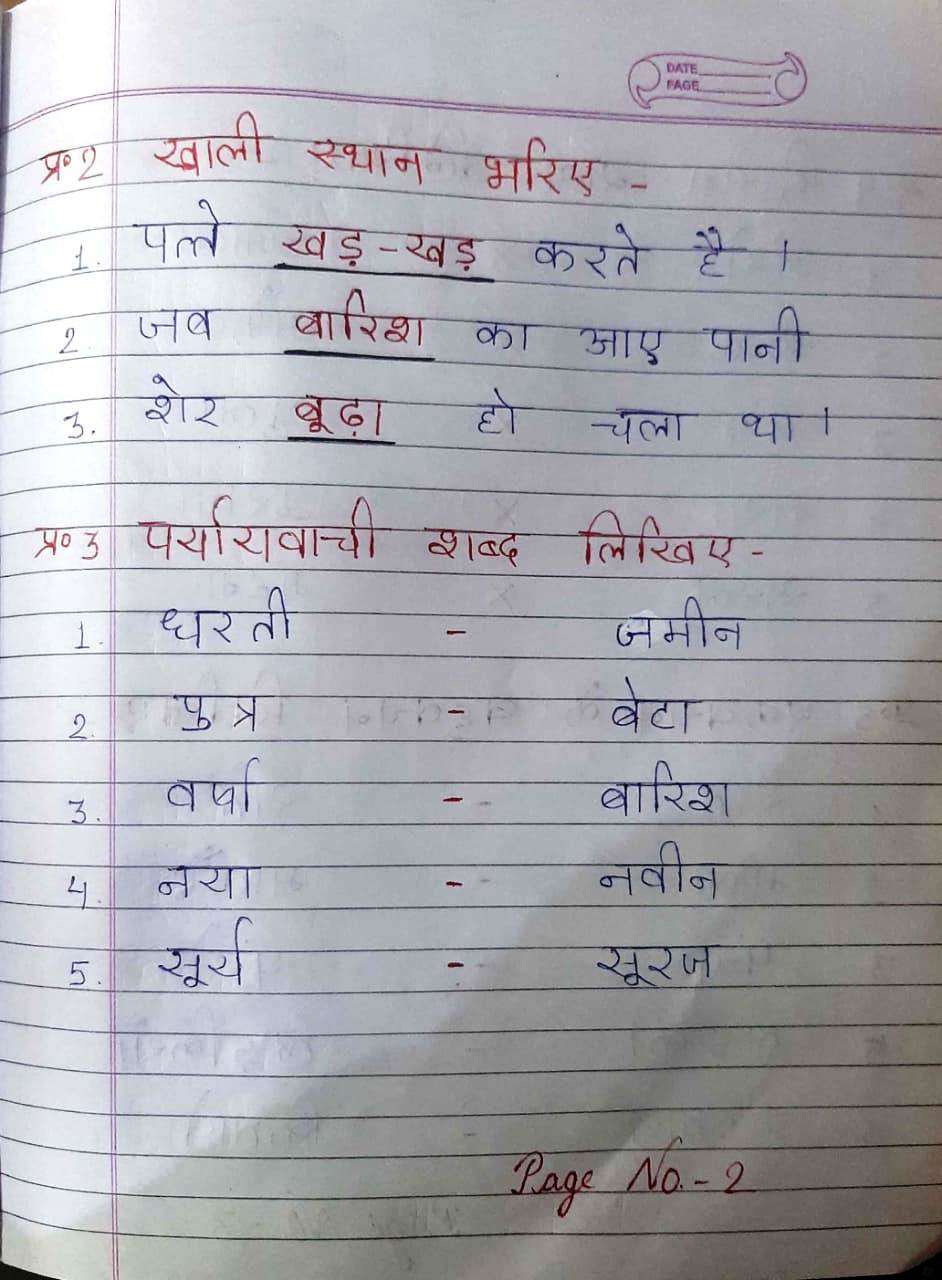 DATE
PAGE
प्र॰2 खाली स्थान भरिए -
1. पत्ते खड़-खड़ करते है ।
2. जब बारिश का आए पानी
3. शेर बूढ़ा हो चला था ।
प्र॰ 3 पर्यायवाची शब्द लिखिए -
1. धरती - जमीन
2. पुत्र - बेटा
3. वर्षा - बारिश
4. नया - नवीन
5. सूर्य - सूरज
Page No. - 2